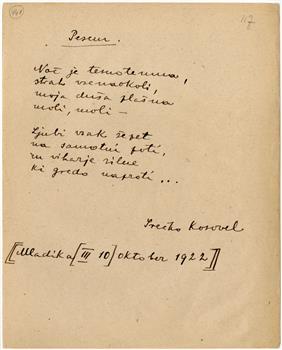 117
Pesem.
Noč je temotemna,
strah vsenaokoli,
moja duša plašna
moli, moli –
Ljubi vsak šepet
na samotni poti,
in viharje silne
ki gredo naproti ...
Srečko Kosovel
[[Mladika [III 10] oktober 1922]]